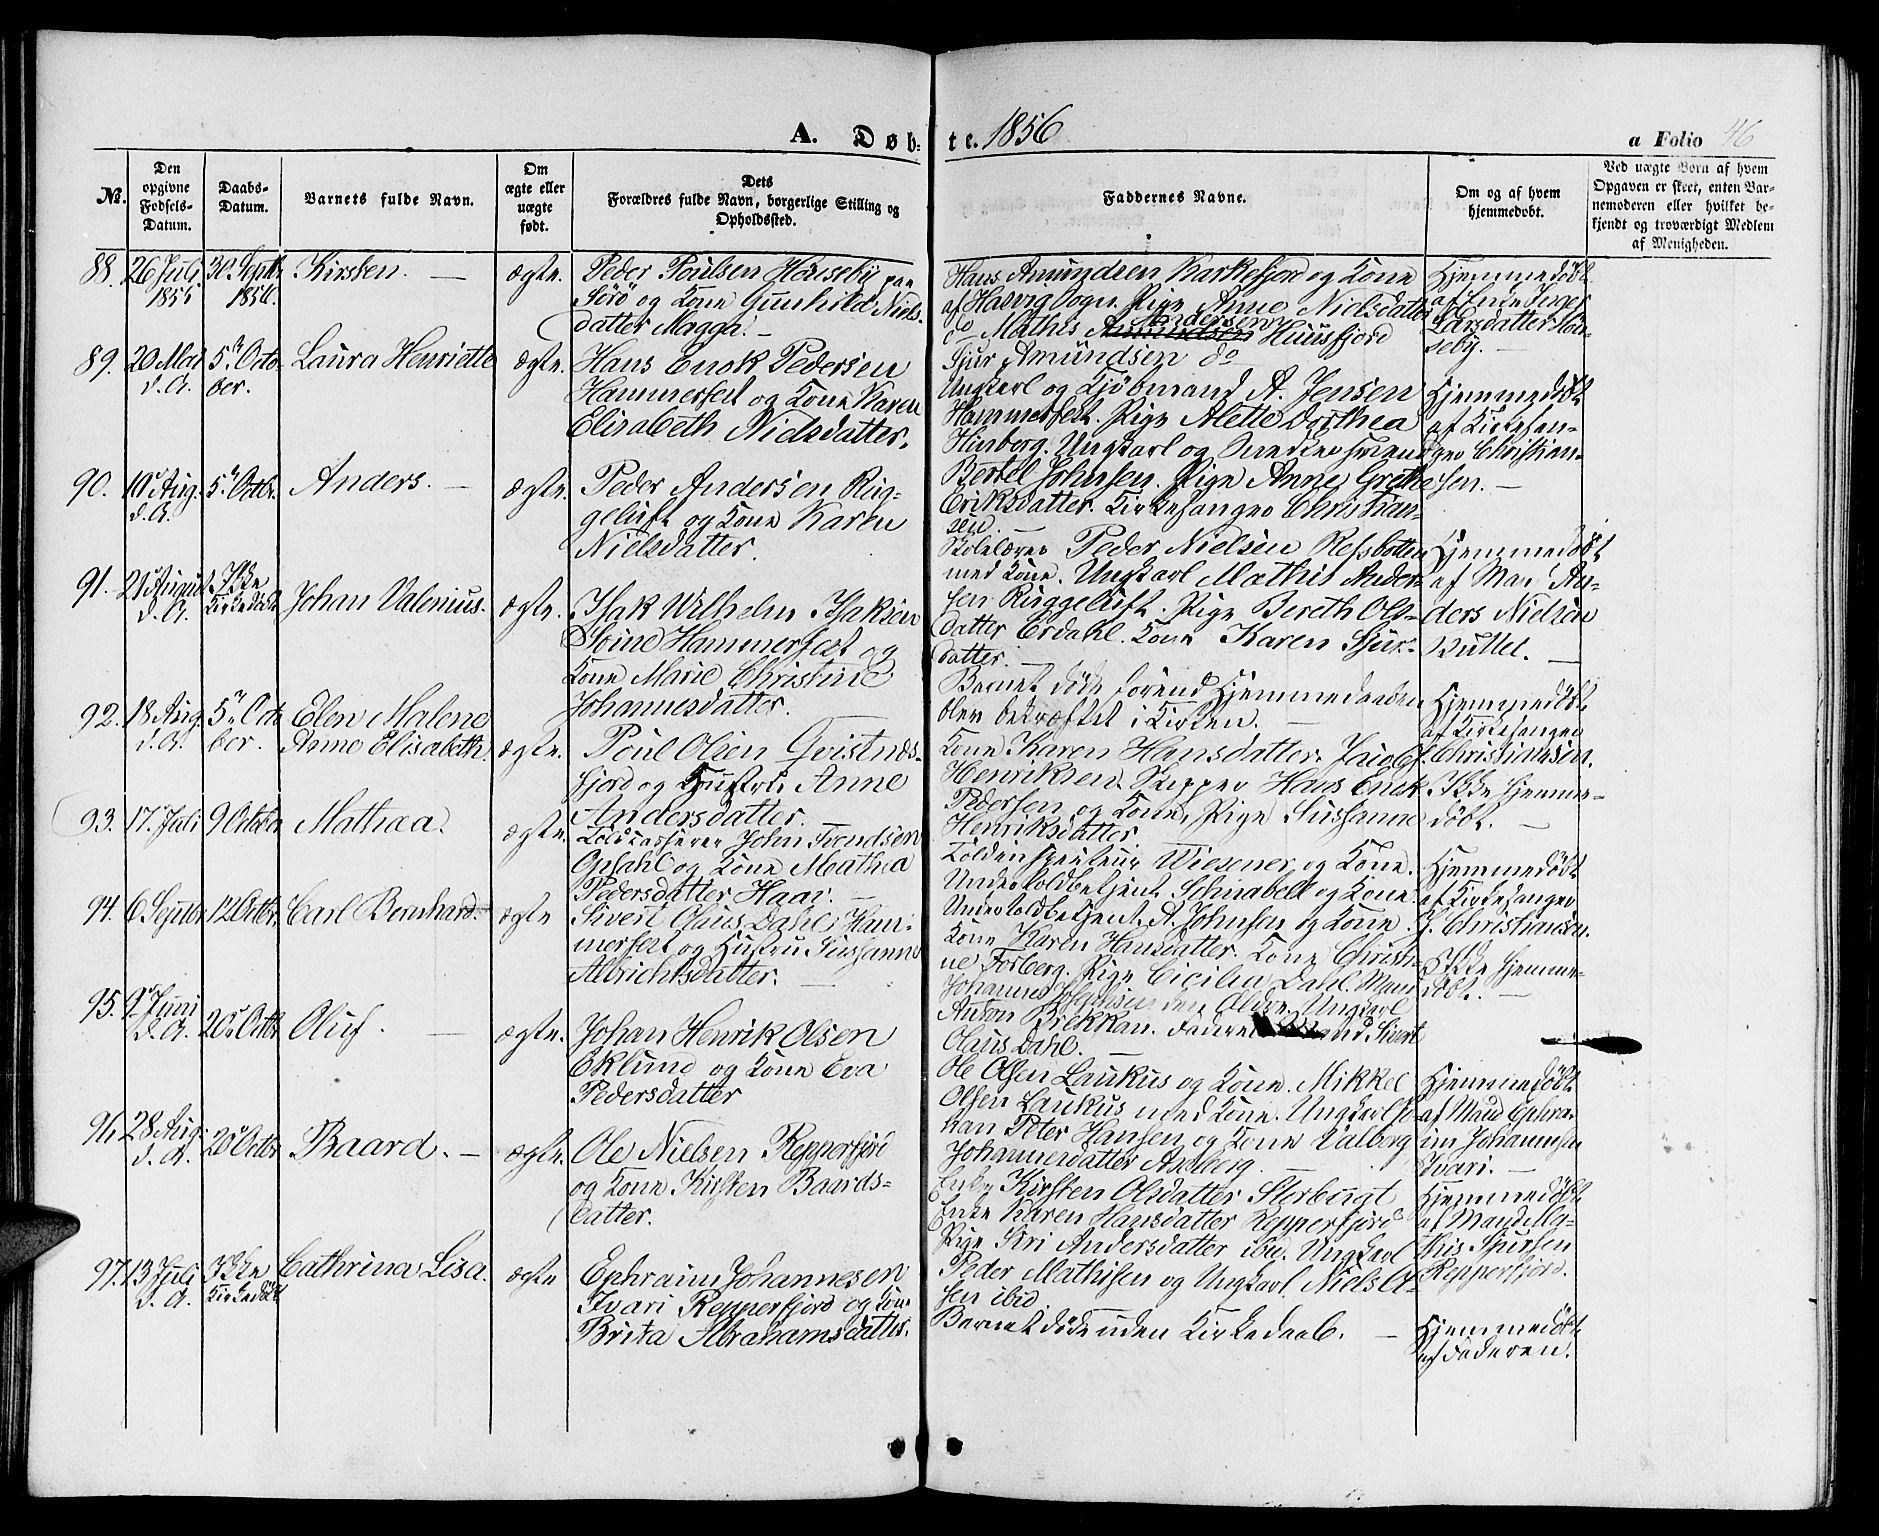 A. Døb-
te. 1856
a Folio 46
No.
Den
opgivne
Fødsels-
Datum.
Daabs-
Datum.
Barnets fulde Navn.
Om
ægte eller
uægte
født.
Dets
Forældres fulde Navn, borgerlige Stilling og
Opholdssted.
Faddernes Navne.
Om og af hvem
hjemmedøbt.
Ved uægte Børn af hvem
Opgaven er skeet, enten Bar-
nemoderen eller hvilket be-
kjendt og troværdigt Medlem
af Menigheden.
88. 26 Juli 1855 30 Septbr 1856. Kirsten. — ægte.
Peder Poulsen Hønseby paa
Sörö og Kone Gunhild Niels-
datter Magga. —
Hans Amundsen Karkefjord og Kone
af Hasvig Sogn. Pige Anne Nielsdatter
do Mathis Amundsen Andersen Huusfjord
Sjur Amundsen do
Hjemmedøbt
af Enke Inger
Larsdatter Høn-
seby. —
89. 20 Mai d. A. 5te Octo-
ber. Laura Henriette ægte.
Hans Enok Pedersen
Hammerfest og Kone Karen
Elisabeth Nielsdatter.
Ungkarl og Kjøbmand A. Jensen
Hammerfest. Pige Alette Dorthea
Hinberg. Ungkarl og Snedkersvend
Bertel Johnsen. Pige Anne Grethe
Eriksdatter. Kirkesanger Christian-
sen.
Hjemmedøbt
af Kirkesan-
ger Christian-
sen. —
90. 10 Aug. d. A. 5te Octbr. Anders. — ægte.
Peder Andersen Rug-
geluft og Kone Karen
Nielsdatter.
Skolelærer Peder Nielsen Refsbotten
med Kone. Ungkarl Mathis Ander-
sen Ruggeluft. Pige Bereth Ols-
datter Erdahl. Kone Karen Sjur-
datter. —
Hjemmedøbt
af Mand An-
ders Nielsen
Buttel. —
91. 21 August d. A. Ikke
Kirkedøbt Johan Valenius. ægte.
Isak Wilhelm Isaksen
Soine Hammerfest og
Kone Marie Christine
Johannesdatter.
Barnet døde forend Hjemmedaaben
blev bekræftet i Kirken. —
Hjemmedøbt
af Kirkesanger
Christiansen.
92. 18 Aug. d. A. 5te Octo-
ber. Elen Malene
Anne Elisabeth. ægte.
Poul Olsen Qvistnæs-
fjord og Hustru Anne
Andersdatter. —
Kone Karen Hansdatter. Jacob
Henriksen. Skipper Hans Enok
Pedersen og Kone, Pige Sussanne
Henriksdatter.
Ikke hjemme-
døbt. —
93. 17. Juli 9 Octbr Mathea. ægte.
Toldkasserer John Trondsen
Opdahl og Kone Mathea
Pedersdatter Haar. —
Toldinspecteur Wiesener og Kone.
Undertoldbetjent Schnabell og Kone
Undertoldbetjent A. Johnsen og Kone.
Hjemmedøbt
af Kirkesanger
J. Christiansen.
94. 6 Septbr 12 Octbr. Carl Bernhard. ægte
Sivert Olaus Dahl Ham-
merfest og Hustru Sussanne
Albrichtsdatter. —
Kone Karen Hansdatter. Kone Christi-
ne Forberg. Pige Cicilia Dahl. Mand
Johannes Johansen den Eldre. Ungkarl
Anton Brekkan. Faderen Mand Sivert
Olaus Dahl. —
Ikke hjemme-
døbt. —
95. 9 Juni d. A. 20 Octbr Oluf. — ægte.
Johan Henrik Olsen
Eklund og Kone Eva
Pedersdatter
Ole Olsen Laukus og Kone. Mikkel
Olsen Laukus med Kone. Ungkarl Jo-
han Peter Hansen og Kone Valborg
Johannesdatter Amberg. —
Hjemmedøbt
af Mand Ephra-
im Johannesen
Ivari. —
96. 28 Aug. d. A. 20 Octbr Baard. — ægte.
Ole Nielsen Repperfjord
og Kone Kirsten Baards-
datter.
Enke Kirsten Olsdatter Storbugt
Enke Karen Hansdatter Repperfjord
Pige Siri Andersdatter ibid. Ungkarl
Peder Mathisen og Ungkarl Niels Ol-
sen ibid
Hjemmedøbt
af Mand Ma-
this Sjursen
Repperfjord.
97. 13 Juli d. A. Ikke
Kirkedøbt Cathrina Lisa. ægte
Ephraim Johannesen
Ivari Repperfjord og Kone
Brita Abrahamsdatter.
Barnet døde uden Kirkedaab. —
Hjemmedøbt
af Faderen.